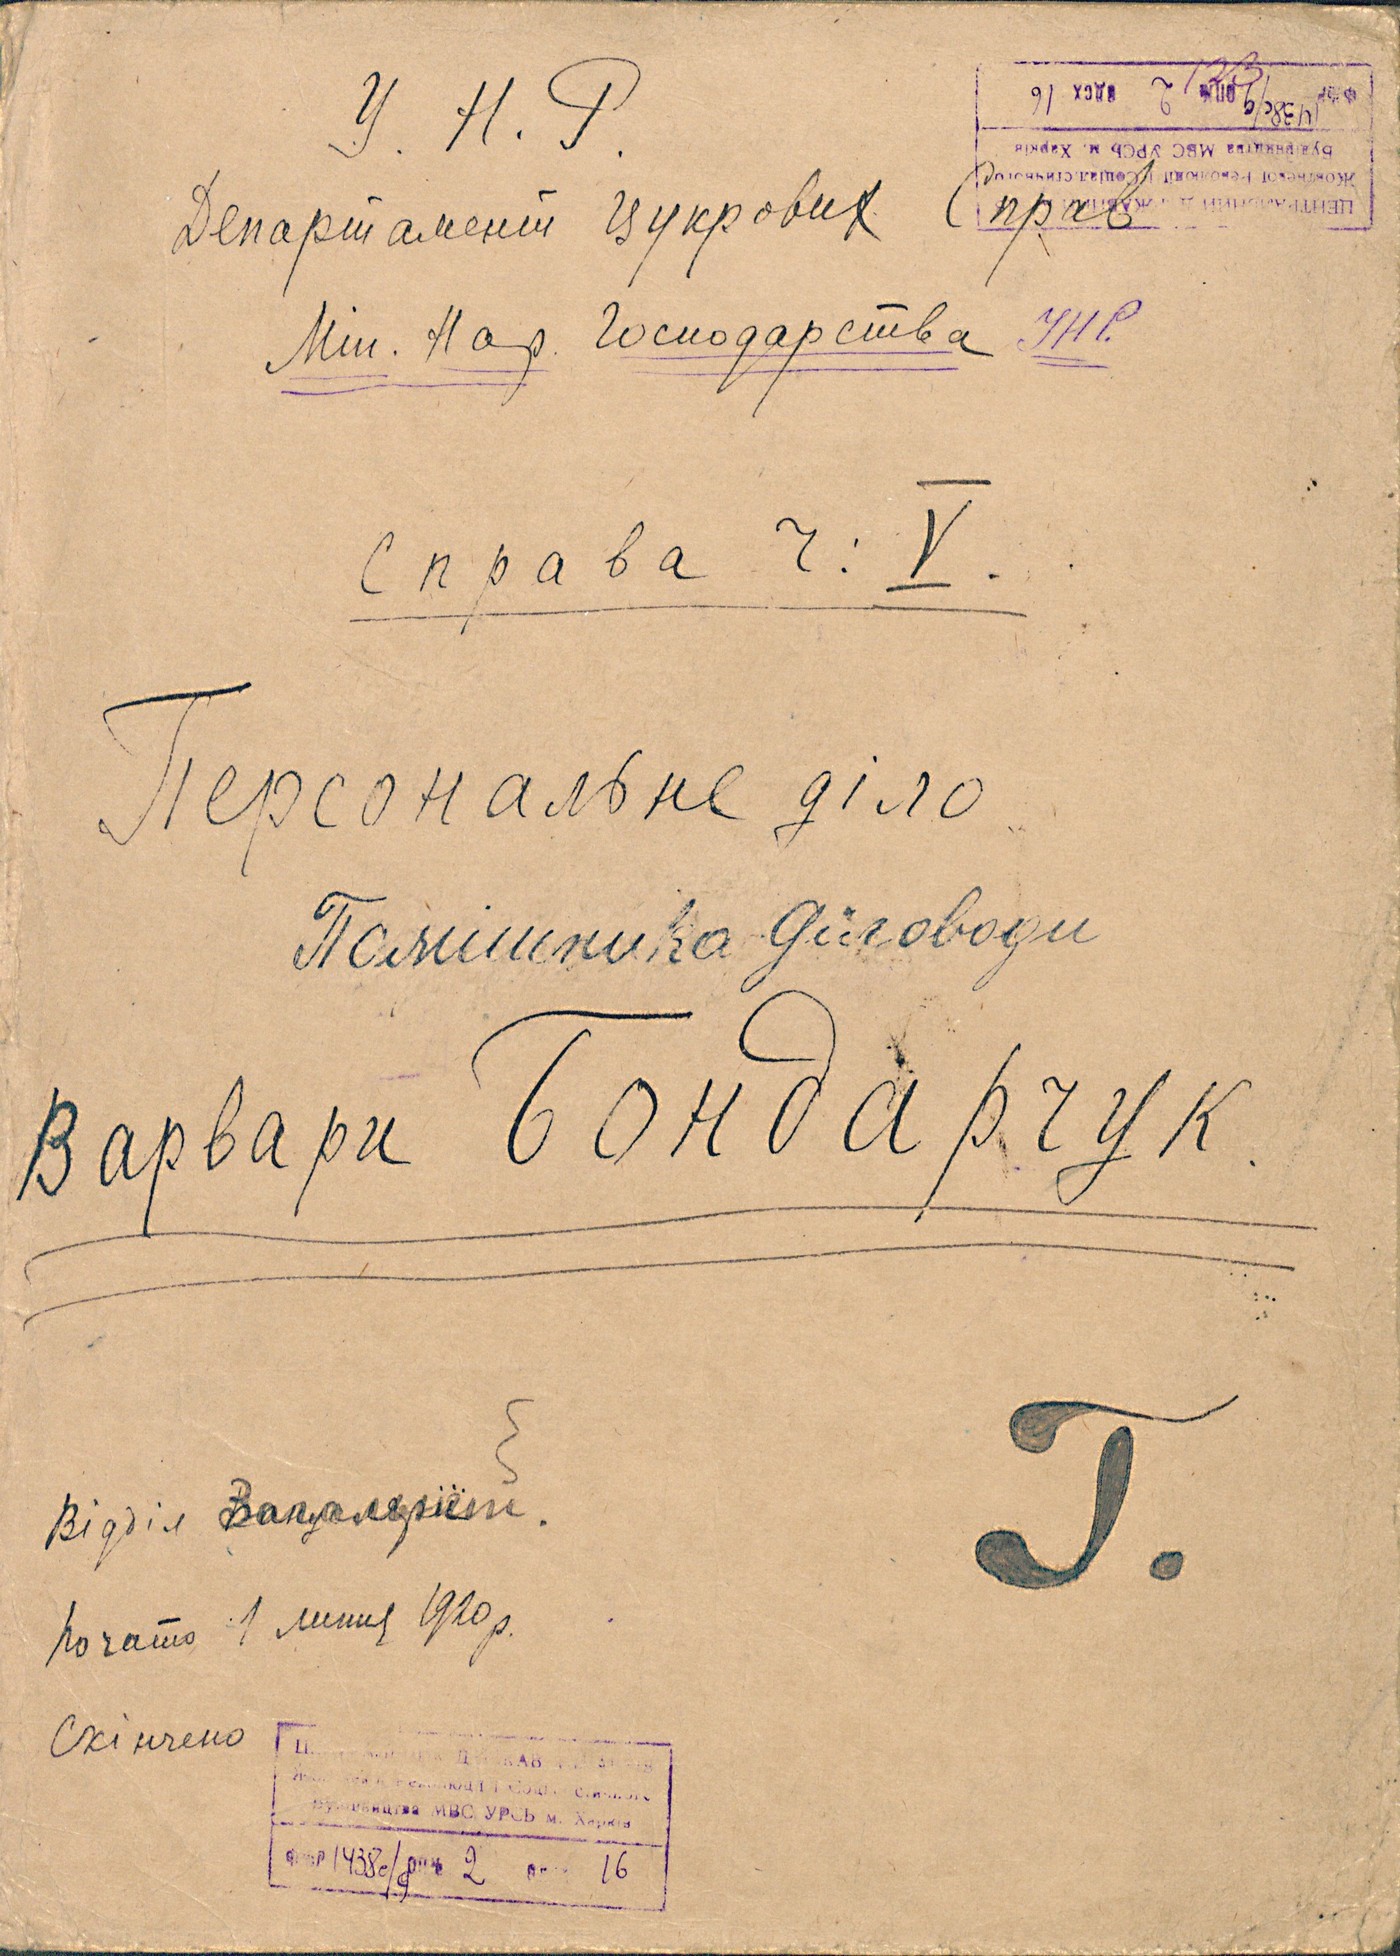 У. Н. Р.
Департамент Цукрових Справ
Мін. Нар. Господарства УНР.
Справа Ч: V.
Персональне діло
Помішника Діловоди
Варвари Бондарчук.
Г.
Відділ
Почато 1 липня 1920 р.
Скінчено
ЦЕНТРАЛЬНИЙ ДЕРЖАВНИЙ АРХІВ
Жовтневої Революції і Соціалістичного
Будівництва МВС УРСР м. Харків
Фонд 1438с/9 опис 2 одсх 16
123
Центральний ДЕРЖАВНИЙ АРХІВ
Жовтневої Революції і Соціалістичного
Будівництва МВС УРСР м. Харків
1438с/9 опис 2 16